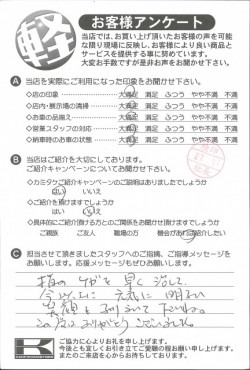 軽
お客様アンケート
当店では、お買い上げ頂いたお客様の声を可能
な限り現場に反映し、お客様により良い商品と
サービスを提供する事に努めています。
大変お手数ですが是非お声をお聞かせ下さい。
A 当店を実際にご利用になった印象をお聞かせ下さい。
◇店の印象 大満足 満足 ふつう やや不満 不満
◇店内・展示場の清掃 大満足 満足 ふつう やや不満 不満
◇お車の品揃え 大満足 満足 ふつう やや不満 不満
◇営業スタッフの対応 大満足 満足 ふつう やや不満 不満
◇納車時のお車の状態 大満足 満足 ふつう やや不満 不満
B 当店はご紹介を大切にしております。
ご紹介キャンペーンについてお聞かせ下さい。
◇カミタケご紹介キャンペーンのご説明はありましたでしょうか
はい いいえ
◇ご紹介を頂けますでしょうか
はい いいえ
◇具体的にご紹介頂ける方との関係をお聞かせ頂けますでしょうか
ご親族 ご友人 職場の方 機会があればご紹介したい
C 担当させて頂きましたスタッフへのご指摘、ご指導メッセージを
お願いします。応援メッセージもぜひお願いします。
指のケガを早く治して、
今以上に元気に明るい
笑顔をふりまいて下さいね。
この度はありがとうございました。
K
ご協力に心よりお礼を申し上げます。
今後とも宜しくお引き立てご愛顧の程お願い申し上げます。
またのご来店を心からお待ちしております。